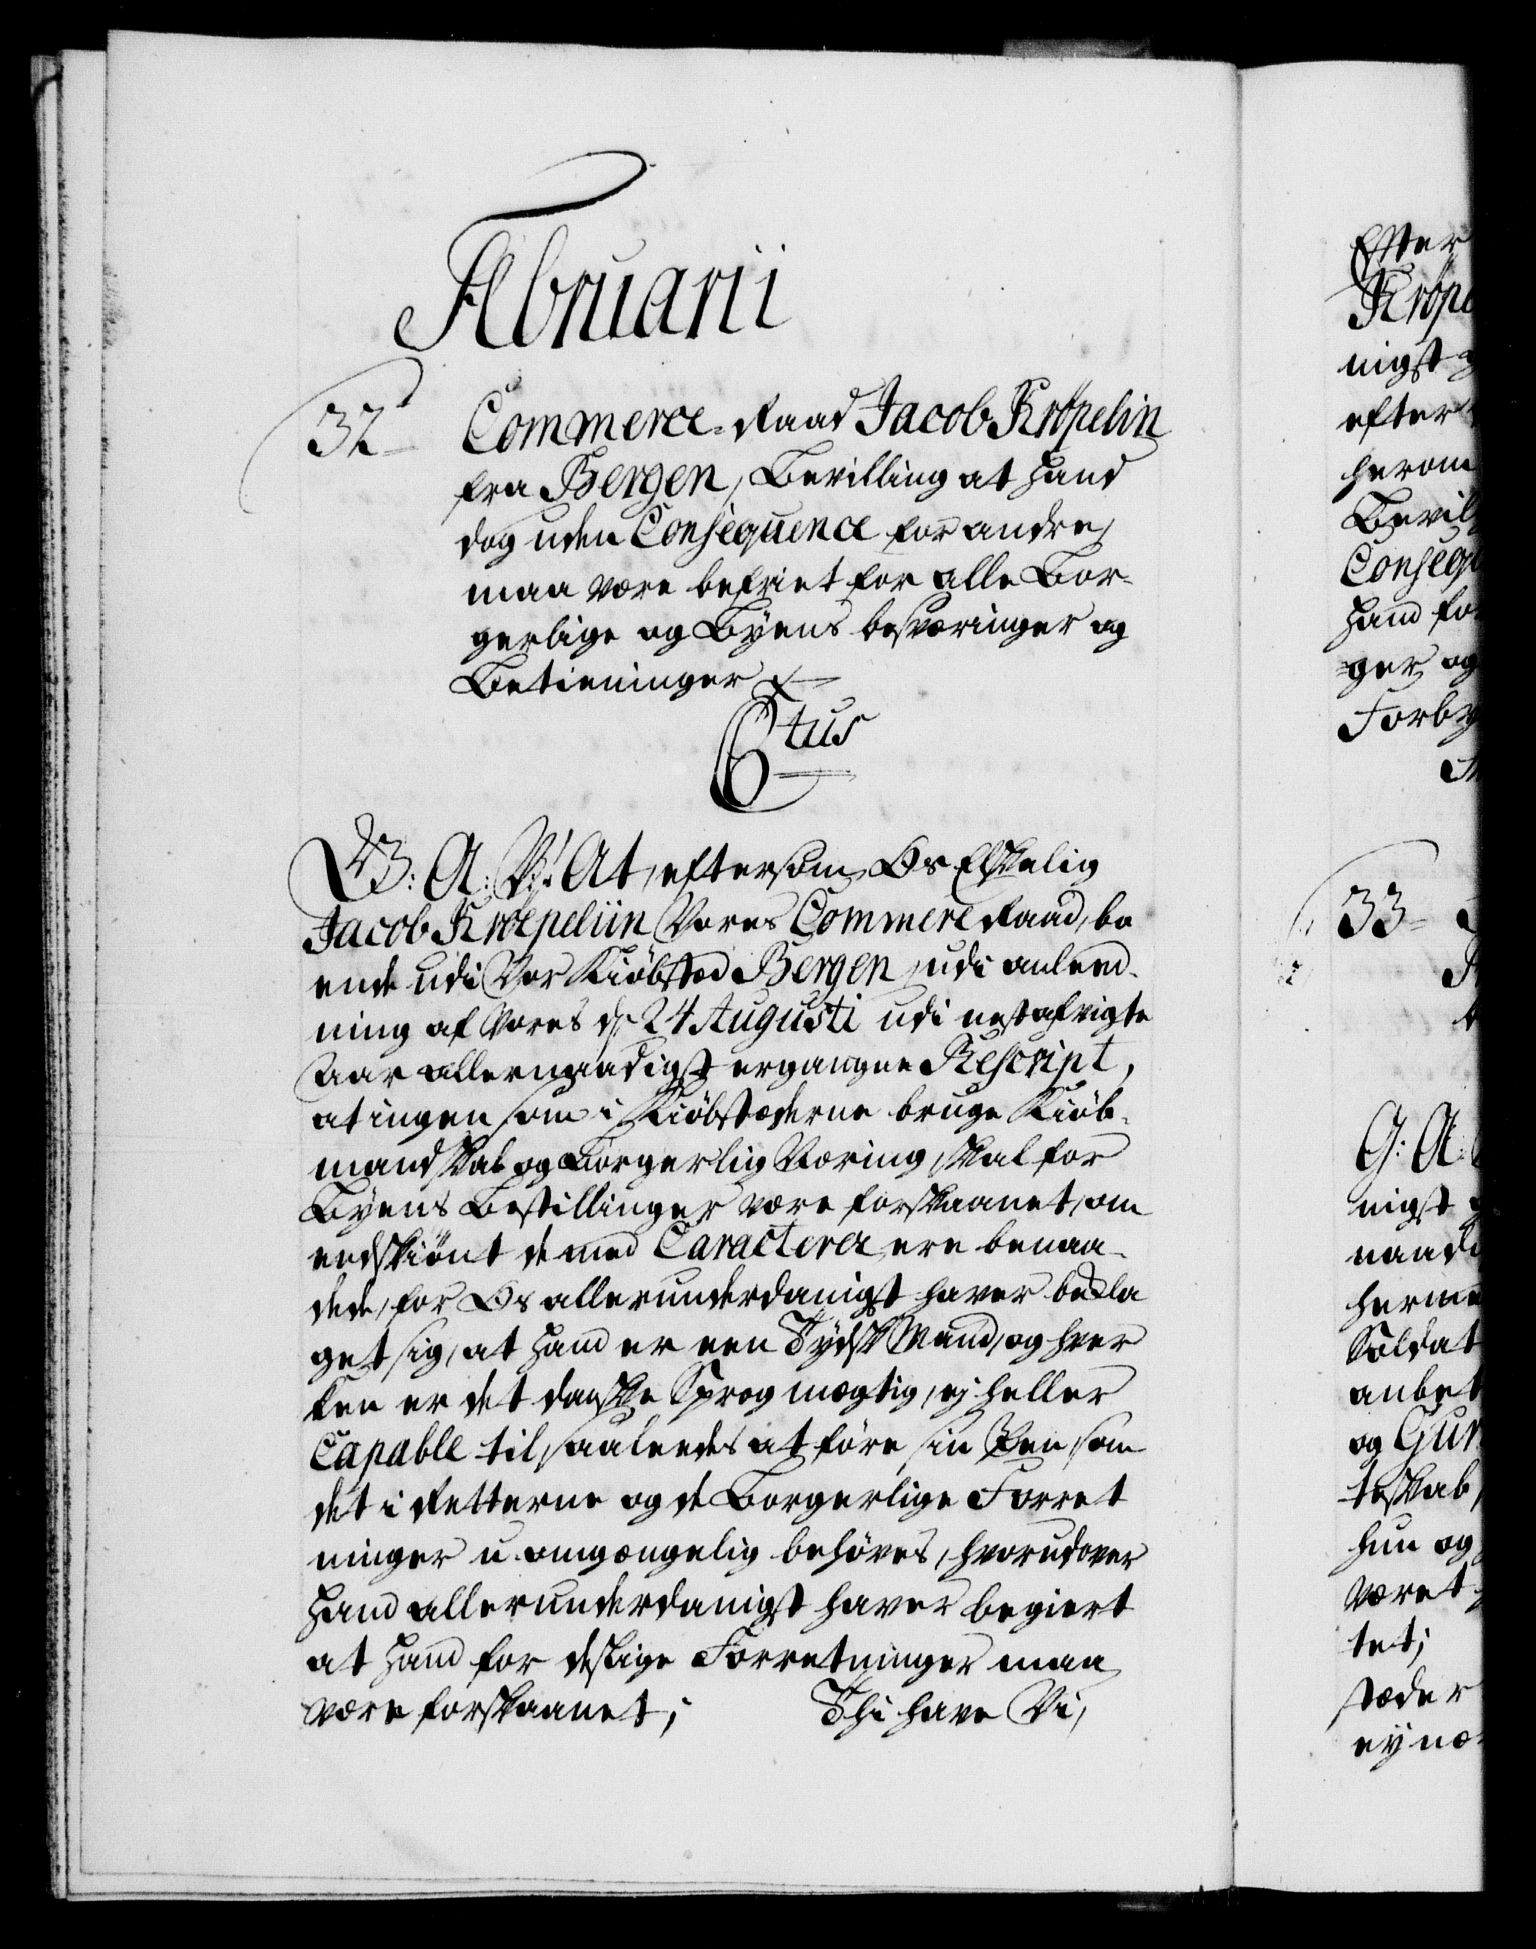 Februarii
32 Commerce-Raad Jacob Kröpelin
fra Bergen, Bevilling at hand
dog uden Conseqvence for andre,
maa være befriet for alle Bor-
gerlige og Byens besværinger og
Betieninger
6tus
V: A: V: At, eftersom Os Elskelig
Jacob Kröepeliin Vores Commerce Raad, bo
ende udi Vor Kiøbsted Bergen, udi anled-
ning af Vores d: 24 Augusti udi nestafvigte
Aar allernaadigst ergangne Rescript,
at ingen som i Kiøbstæderne bruge Kiøb-
mandskab og Borgerlig Næring, skal for
Byens Bestillinger være forskaanet, om
endskiönt de med Caracterer ere benaa-
dede, for Os allerunderdanigst haver bekla
get sig, at hand er een Tydsk Mand, og hver
ken er det danske Sprog mægtig, ej heller
Capable til saaleedes at føre sin Pen, som
det i Retterne og de Borgerlige Forret
ninger u-omgængelig behøves, hvorudover
hand allerunderdanigst haver begiert
at hand for deslige Forretninger maa
være forskaanet; Thi have Vi,
Efter
Kröpe
nigst
efter
herom
Bevil
Conseqv
hand for
ger og
Forby
33
G: A:
nigst
naadi
herme
Soldat
anbet
og Gur
teskab,
hun og
været
tet;
stæder
ey næ